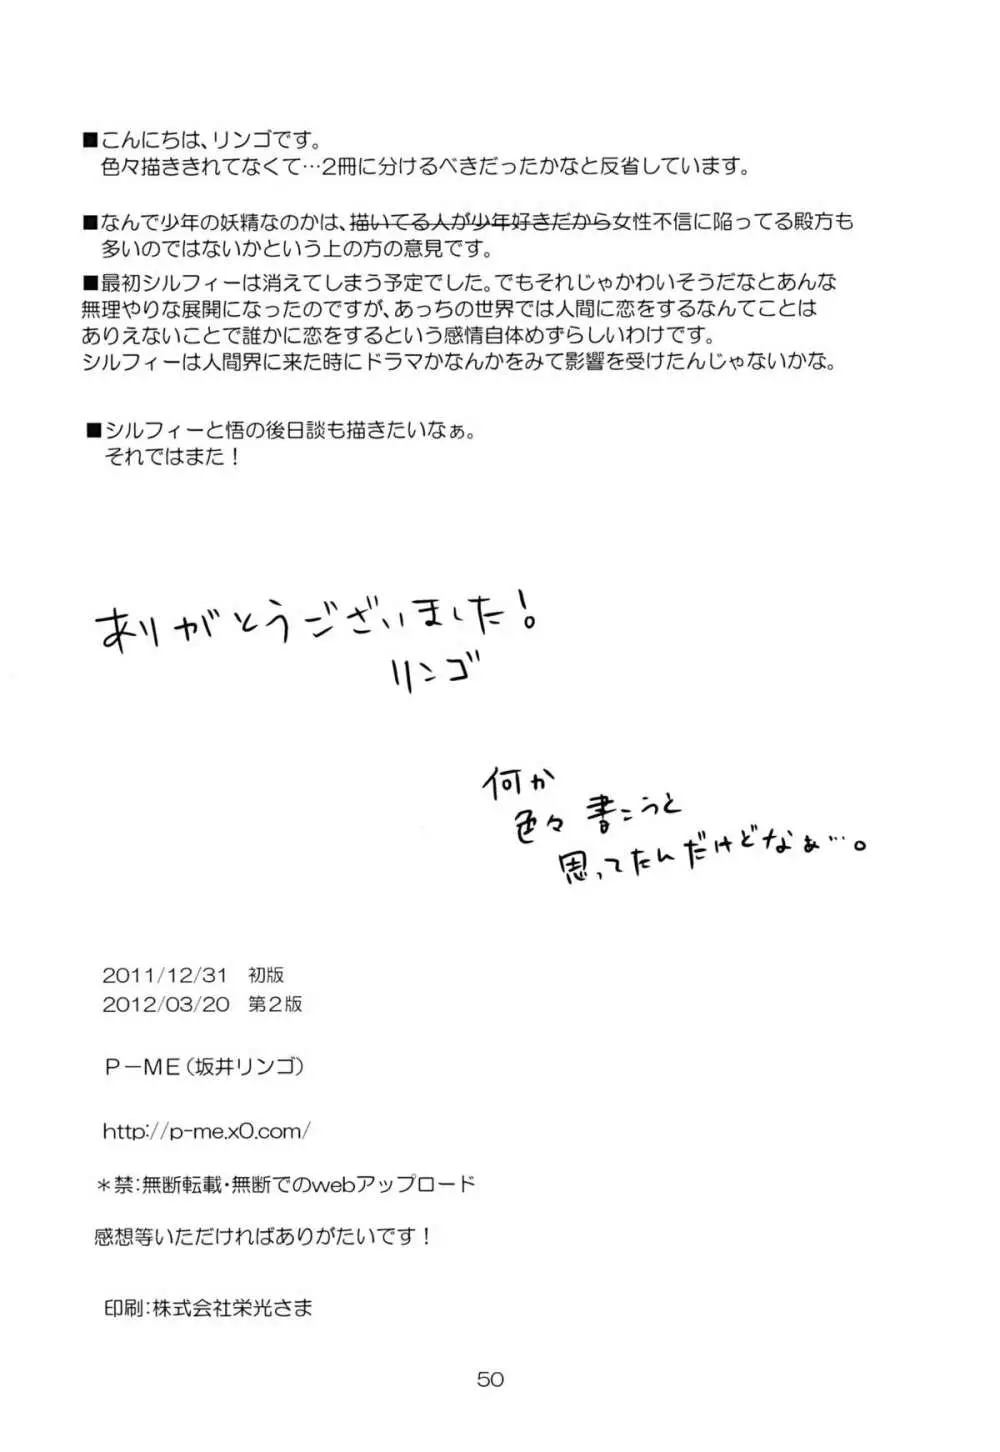 ■こんにちは、リンゴです。
色々描ききれてなくて…2冊に分けるべきだったかなと反省しています。
■なんで少年の妖精なのかは、描いてる人が少年好きだから女性不信に陥ってる殿方も
多いのではないかという上の方の意見です。
■最初シルフィーは消えてしまう予定でした。でもそれじゃかわいそうだなとあんな
無理やりな展開になったのですが、あっちの世界では人間に恋をするなんてことは
ありえないことで誰かに恋をするという感情自体めずらしいわけです。
シルフィーは人間界に来た時にドラマかなんかをみて影響を受けたんじゃないかな。
■シルフィーと悟の後日談も描きたいなぁ。
それではまた！
ありがとうございました！
リンゴ
何か
色々書こうと
思ってたんだけどなぁ…。
2011/12/31　初版
2012/03/20　第2版
P－ME（坂井リンゴ）
http://p-me.x0.com/
＊禁：無断転載・無断でのwebアップロード
感想等いただければありがたいです！
印刷：株式会社栄光さま
50